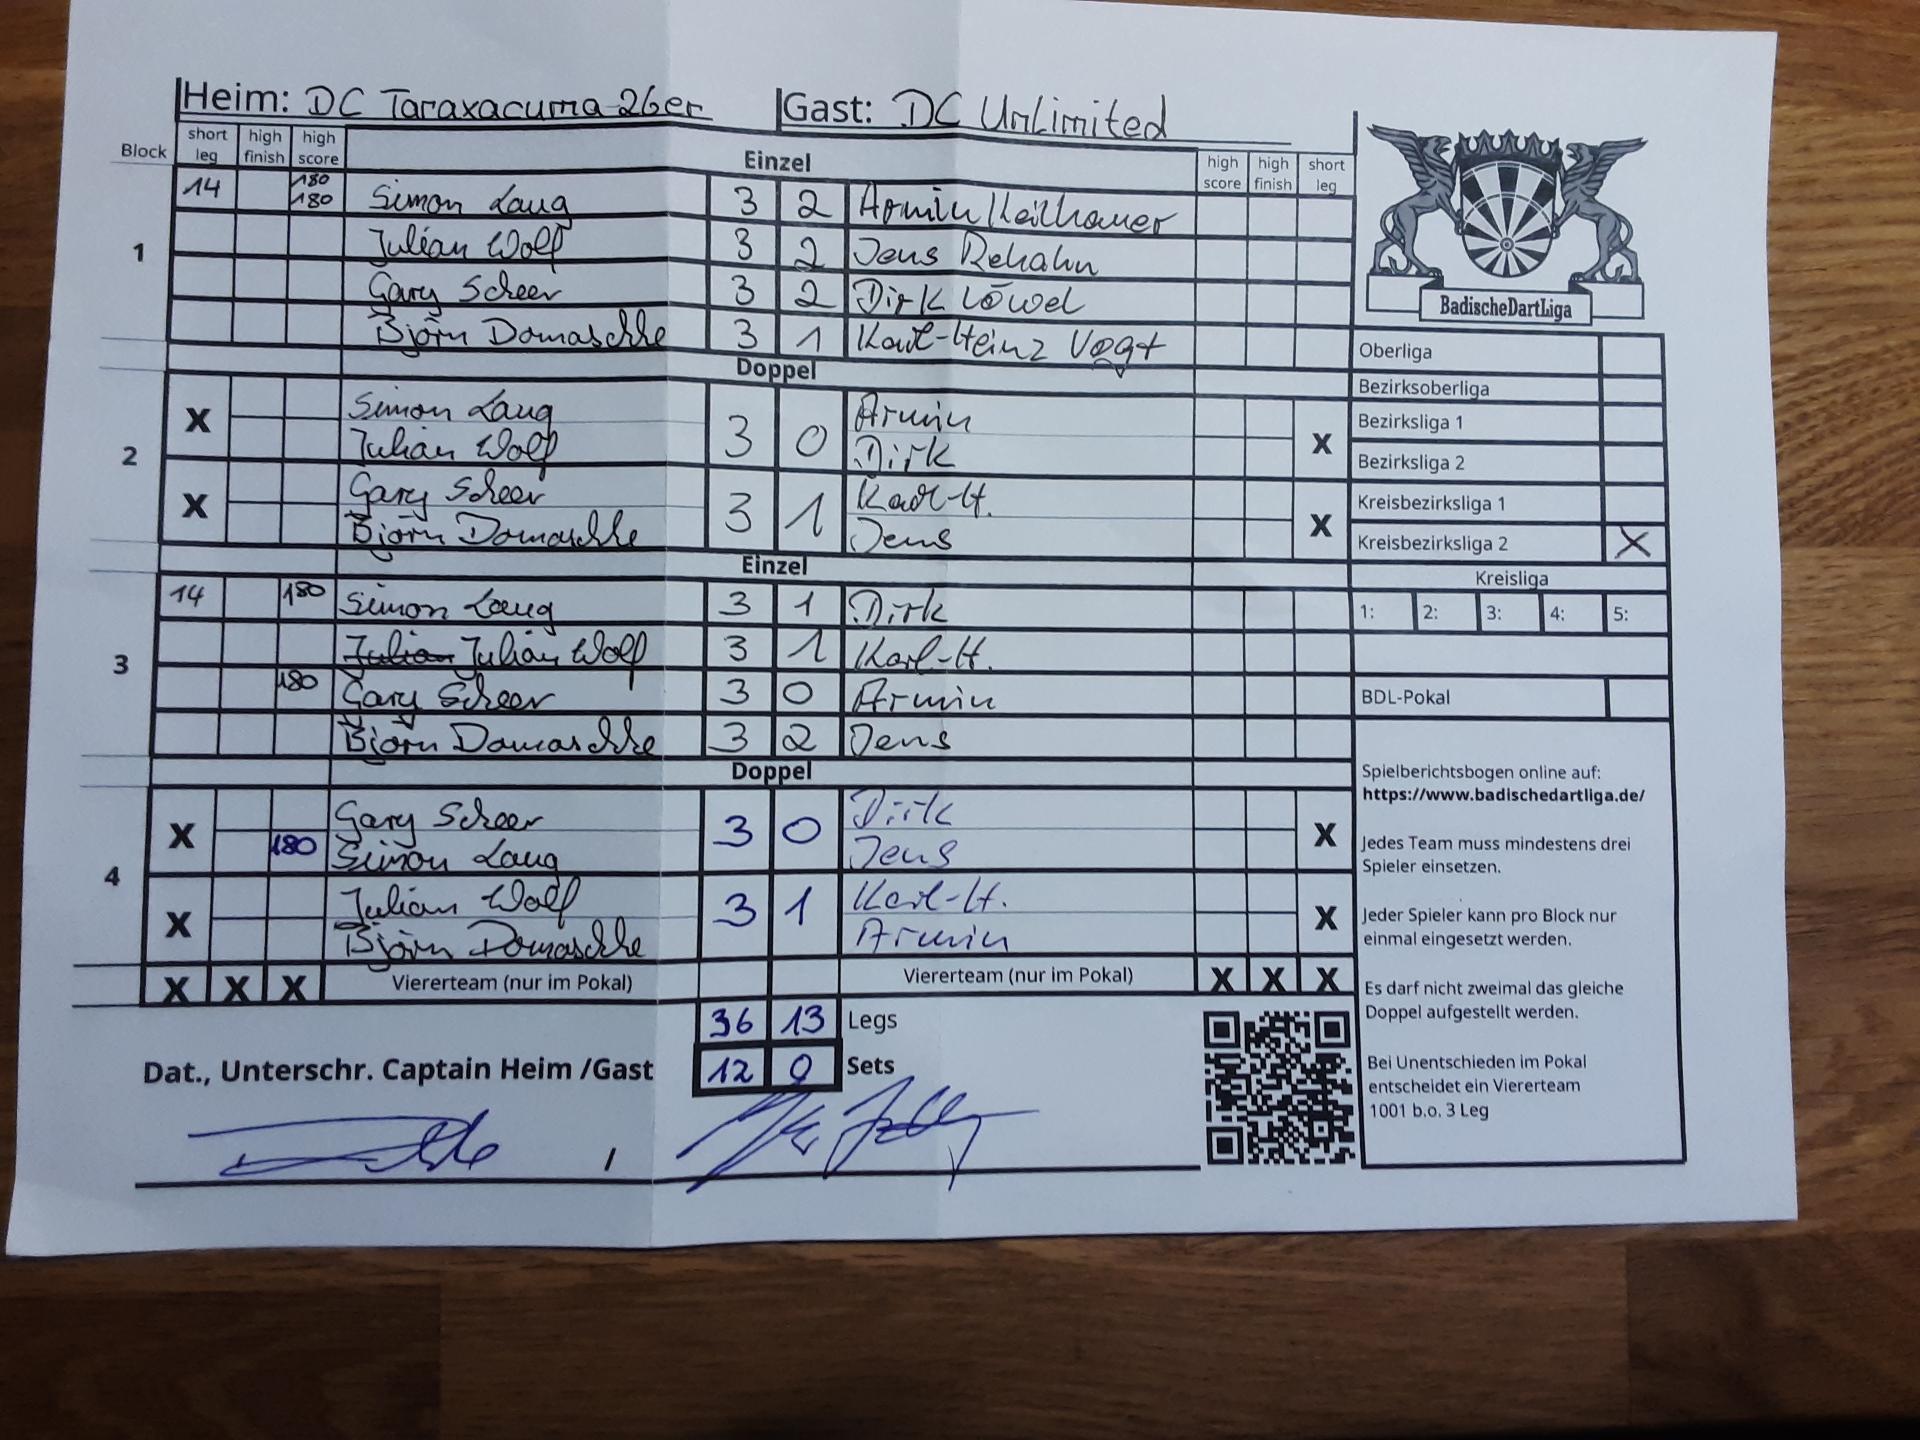 Heim: DC Taraxacuma 26er Gast: DC Unlimited
Block short leg high finish high score Einzel high score high finish short leg
1
14 180 180 Simon Laug 3 2 Armin Keilhauer
Julian Wolf 3 2 Jens Rehahn
Gary Scheer 3 2 Dirk Löwel
Björn Domaschke 3 1 Karl-Heinz Vogt
Doppel
2
X Simon Laug 3 0 Armin X
Julian Wolf Dirk
X Gary Scheer 3 1 Karl-H. X
Björn Domaschke Jens
Einzel
3
14 180 Simon Laug 3 1 Dirk
Julian Julian Wolf 3 1 Karl-H.
180 Gary Scheer 3 0 Armin
Björn Domaschke 3 2 Jens
Doppel
4
X Gary Scheer 3 0 Dirk X
180 Simon Laug Jens
X Julian Wolf 3 1 Karl-H. X
Björn Domaschke Armin
X X X Viererteam (nur im Pokal) Viererteam (nur im Pokal) X X X
36 13 Legs
12 0 Sets
Dat., Unterschr. Captain Heim /Gast
/
BadischeDartLiga
Oberliga
Bezirksoberliga
Bezirksliga 1
Bezirksliga 2
Kreisbezirksliga 1
Kreisbezirksliga 2 X
Kreisliga
1: 2: 3: 4: 5:
BDL-Pokal
Spielberichtsbogen online auf:
https://www.badischedartliga.de/
Jedes Team muss mindestens drei
Spieler einsetzen.
Jeder Spieler kann pro Block nur
einmal eingesetzt werden.
Es darf nicht zweimal das gleiche
Doppel aufgestellt werden.
Bei Unentschieden im Pokal
entscheidet ein Viererteam
1001 b.o. 3 Leg